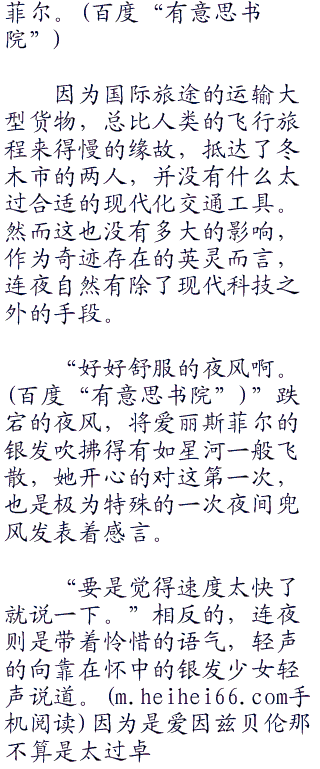 菲尔。(百度“有意思书
院”)
因为国际旅途的运输大
型货物，总比人类的飞行旅
程来得慢的缘故，抵达了冬
木市的两人，并没有什么太
过合适的现代化交通工具。
然而这也没有多大的影响，
作为奇迹存在的英灵而言，
连夜自然有除了现代科技之
外的手段。
“好好舒服的夜风啊。
(百度“有意思书院”)”跌
宕的夜风，将爱丽斯菲尔的
银发吹拂得有如星河一般飞
散，她开心的对这第一次，
也是极为特殊的一次夜间兜
风发表着感言。
“要是觉得速度太快了
就说一下。”相反的，连夜
则是带着怜惜的语气，轻声
的向靠在怀中的银发少女轻
声说道。(m.heihei66.com手
机阅读)因为是爱因兹贝伦那
不算是太过卓